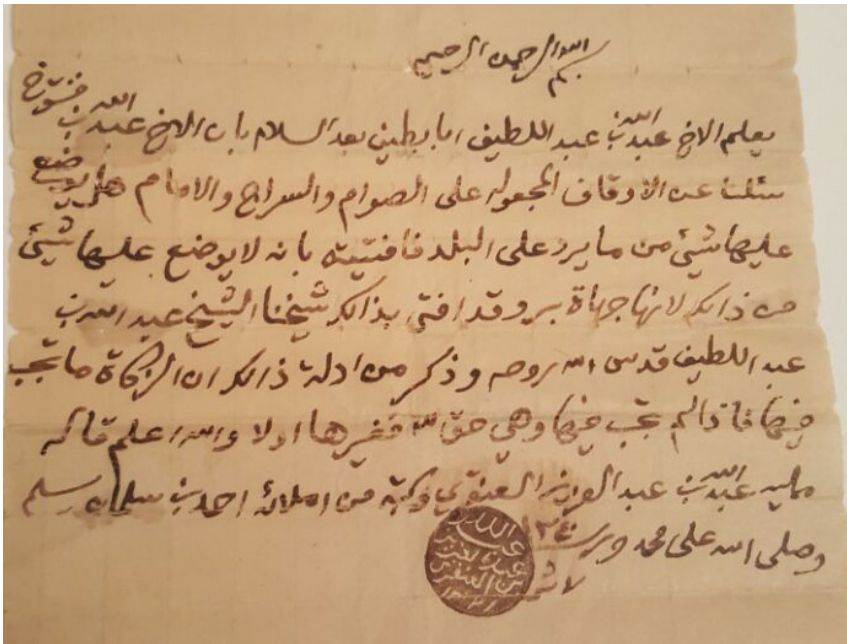 بسم الله الرحمن الرحيم
يعلم الاخ عبدالله بن عبد اللطيف ابابطين بعد السلام بان الاخ عبدالله بن
سئلنا عن الاوقاف المجعوله على الصوام والسراج والامام هل يوضع
عليها شيئ من ما يرد على البلد فافتيته بانه لا يوضع عليها شيئ
من ذالك لانها جهاة بر وقد افتى بذالك شيخنا الشيخ عبدالله بن
عبد اللطيف قدس الله روحه وذكر من ادلة ذالك ان الزكاة ما تجب
فيها فاذا لم تجب فيها وهي حق لله فغيرها اولا والله اعلم قاله
ممليه عبدالله بن عبد العزيز العنقري وكتبه من املائه احمد بن سلمان
وصلى الله على محمد وسلم
عبدالله بن
عبد العزيز
بن العنقري